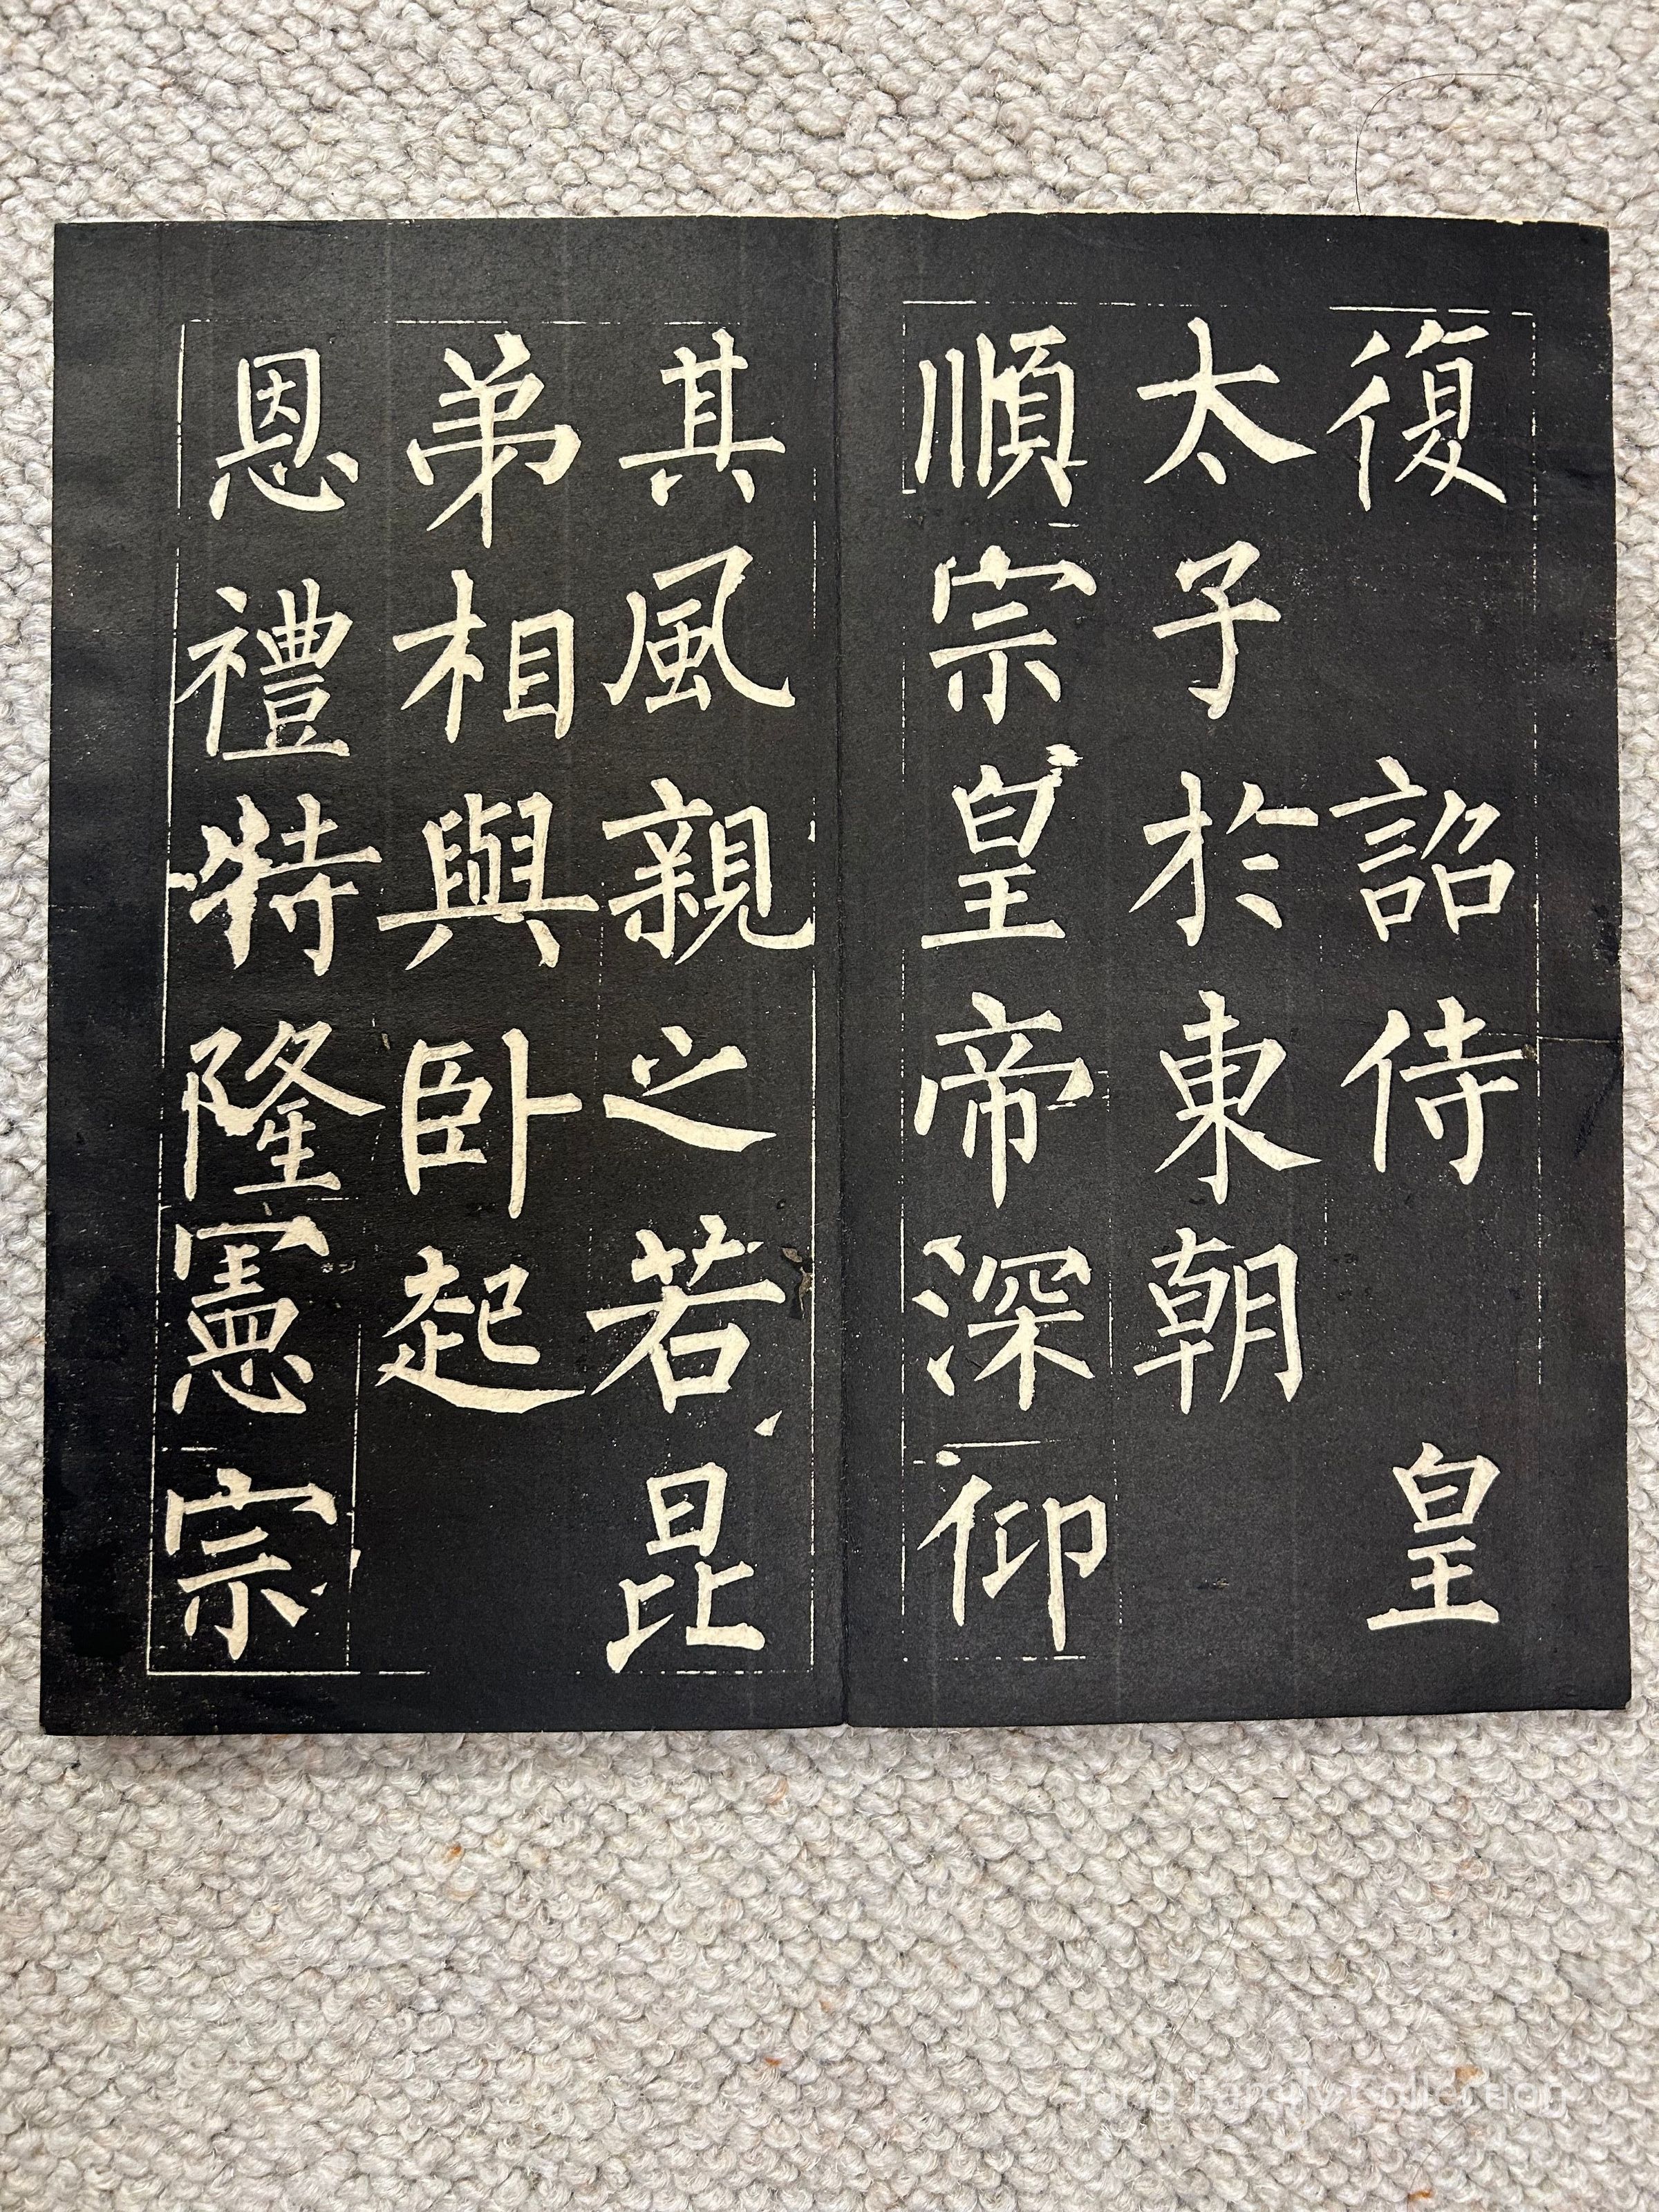 復 詔侍 皇
太子於東朝
順宗皇帝深仰
其風親之若昆
弟相與卧起
恩禮特隆憲宗
Ring Family Collection